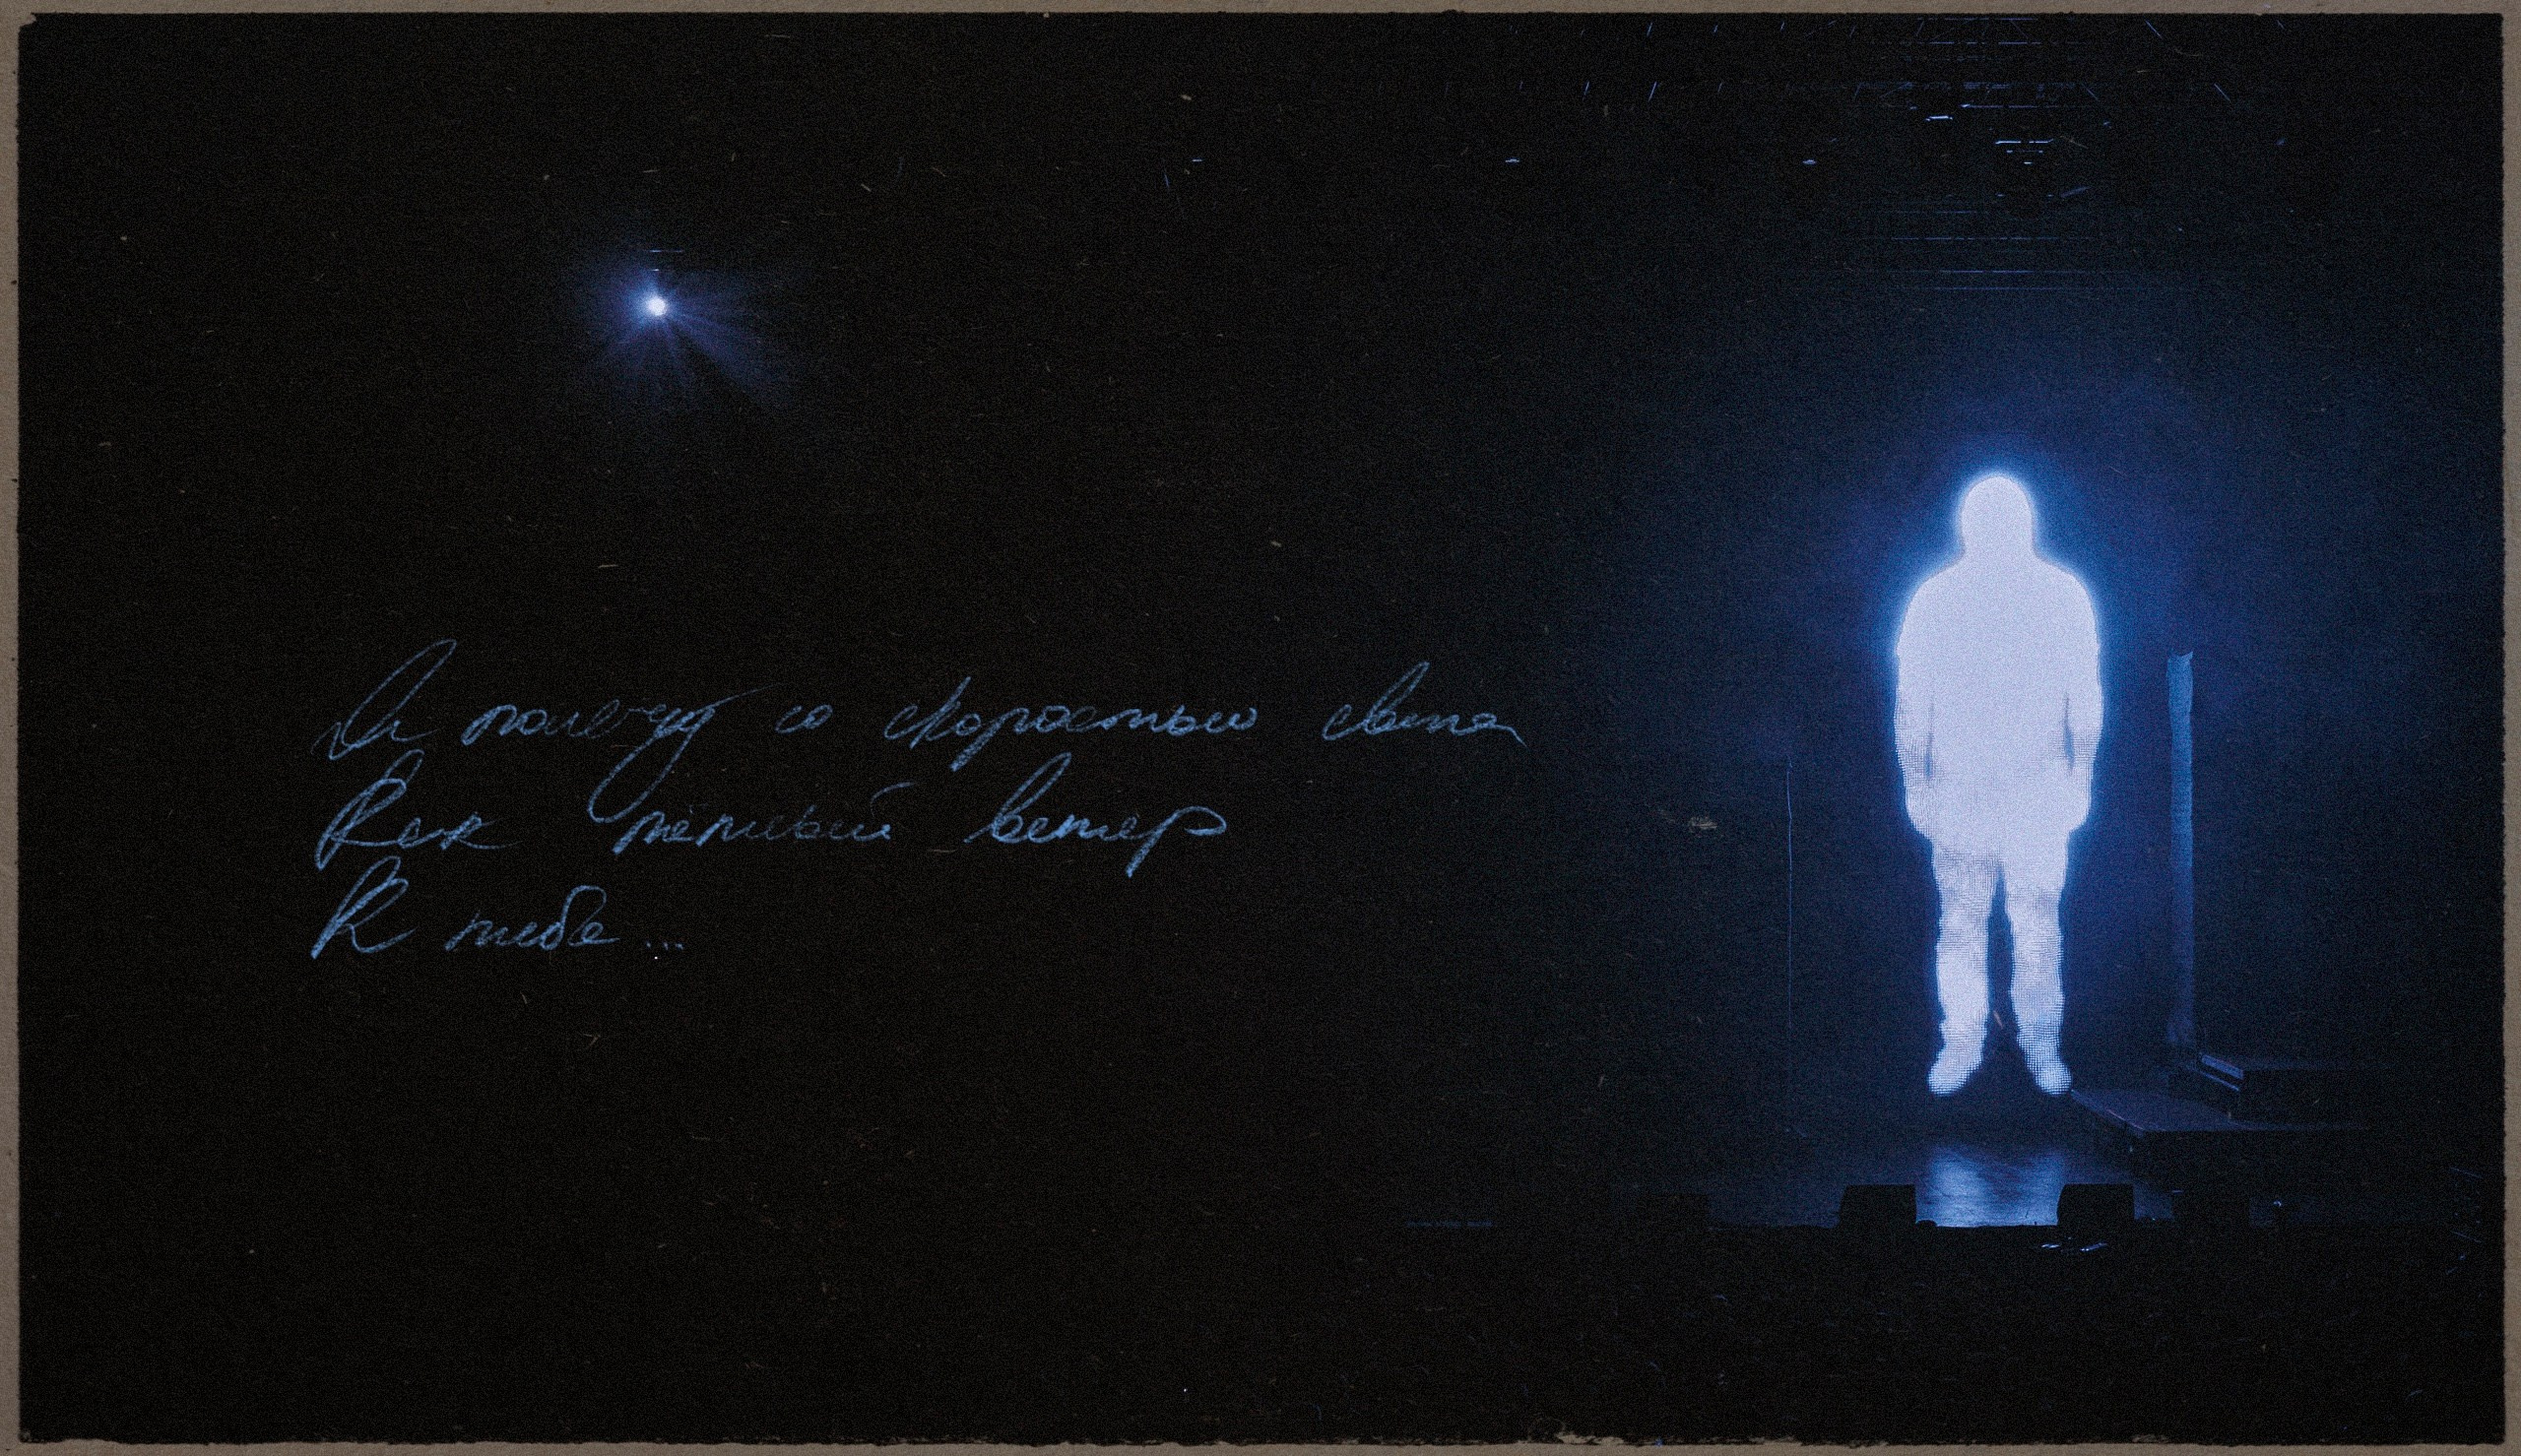 И полечу со скоростью света
Как тёплый ветер
К тебе...